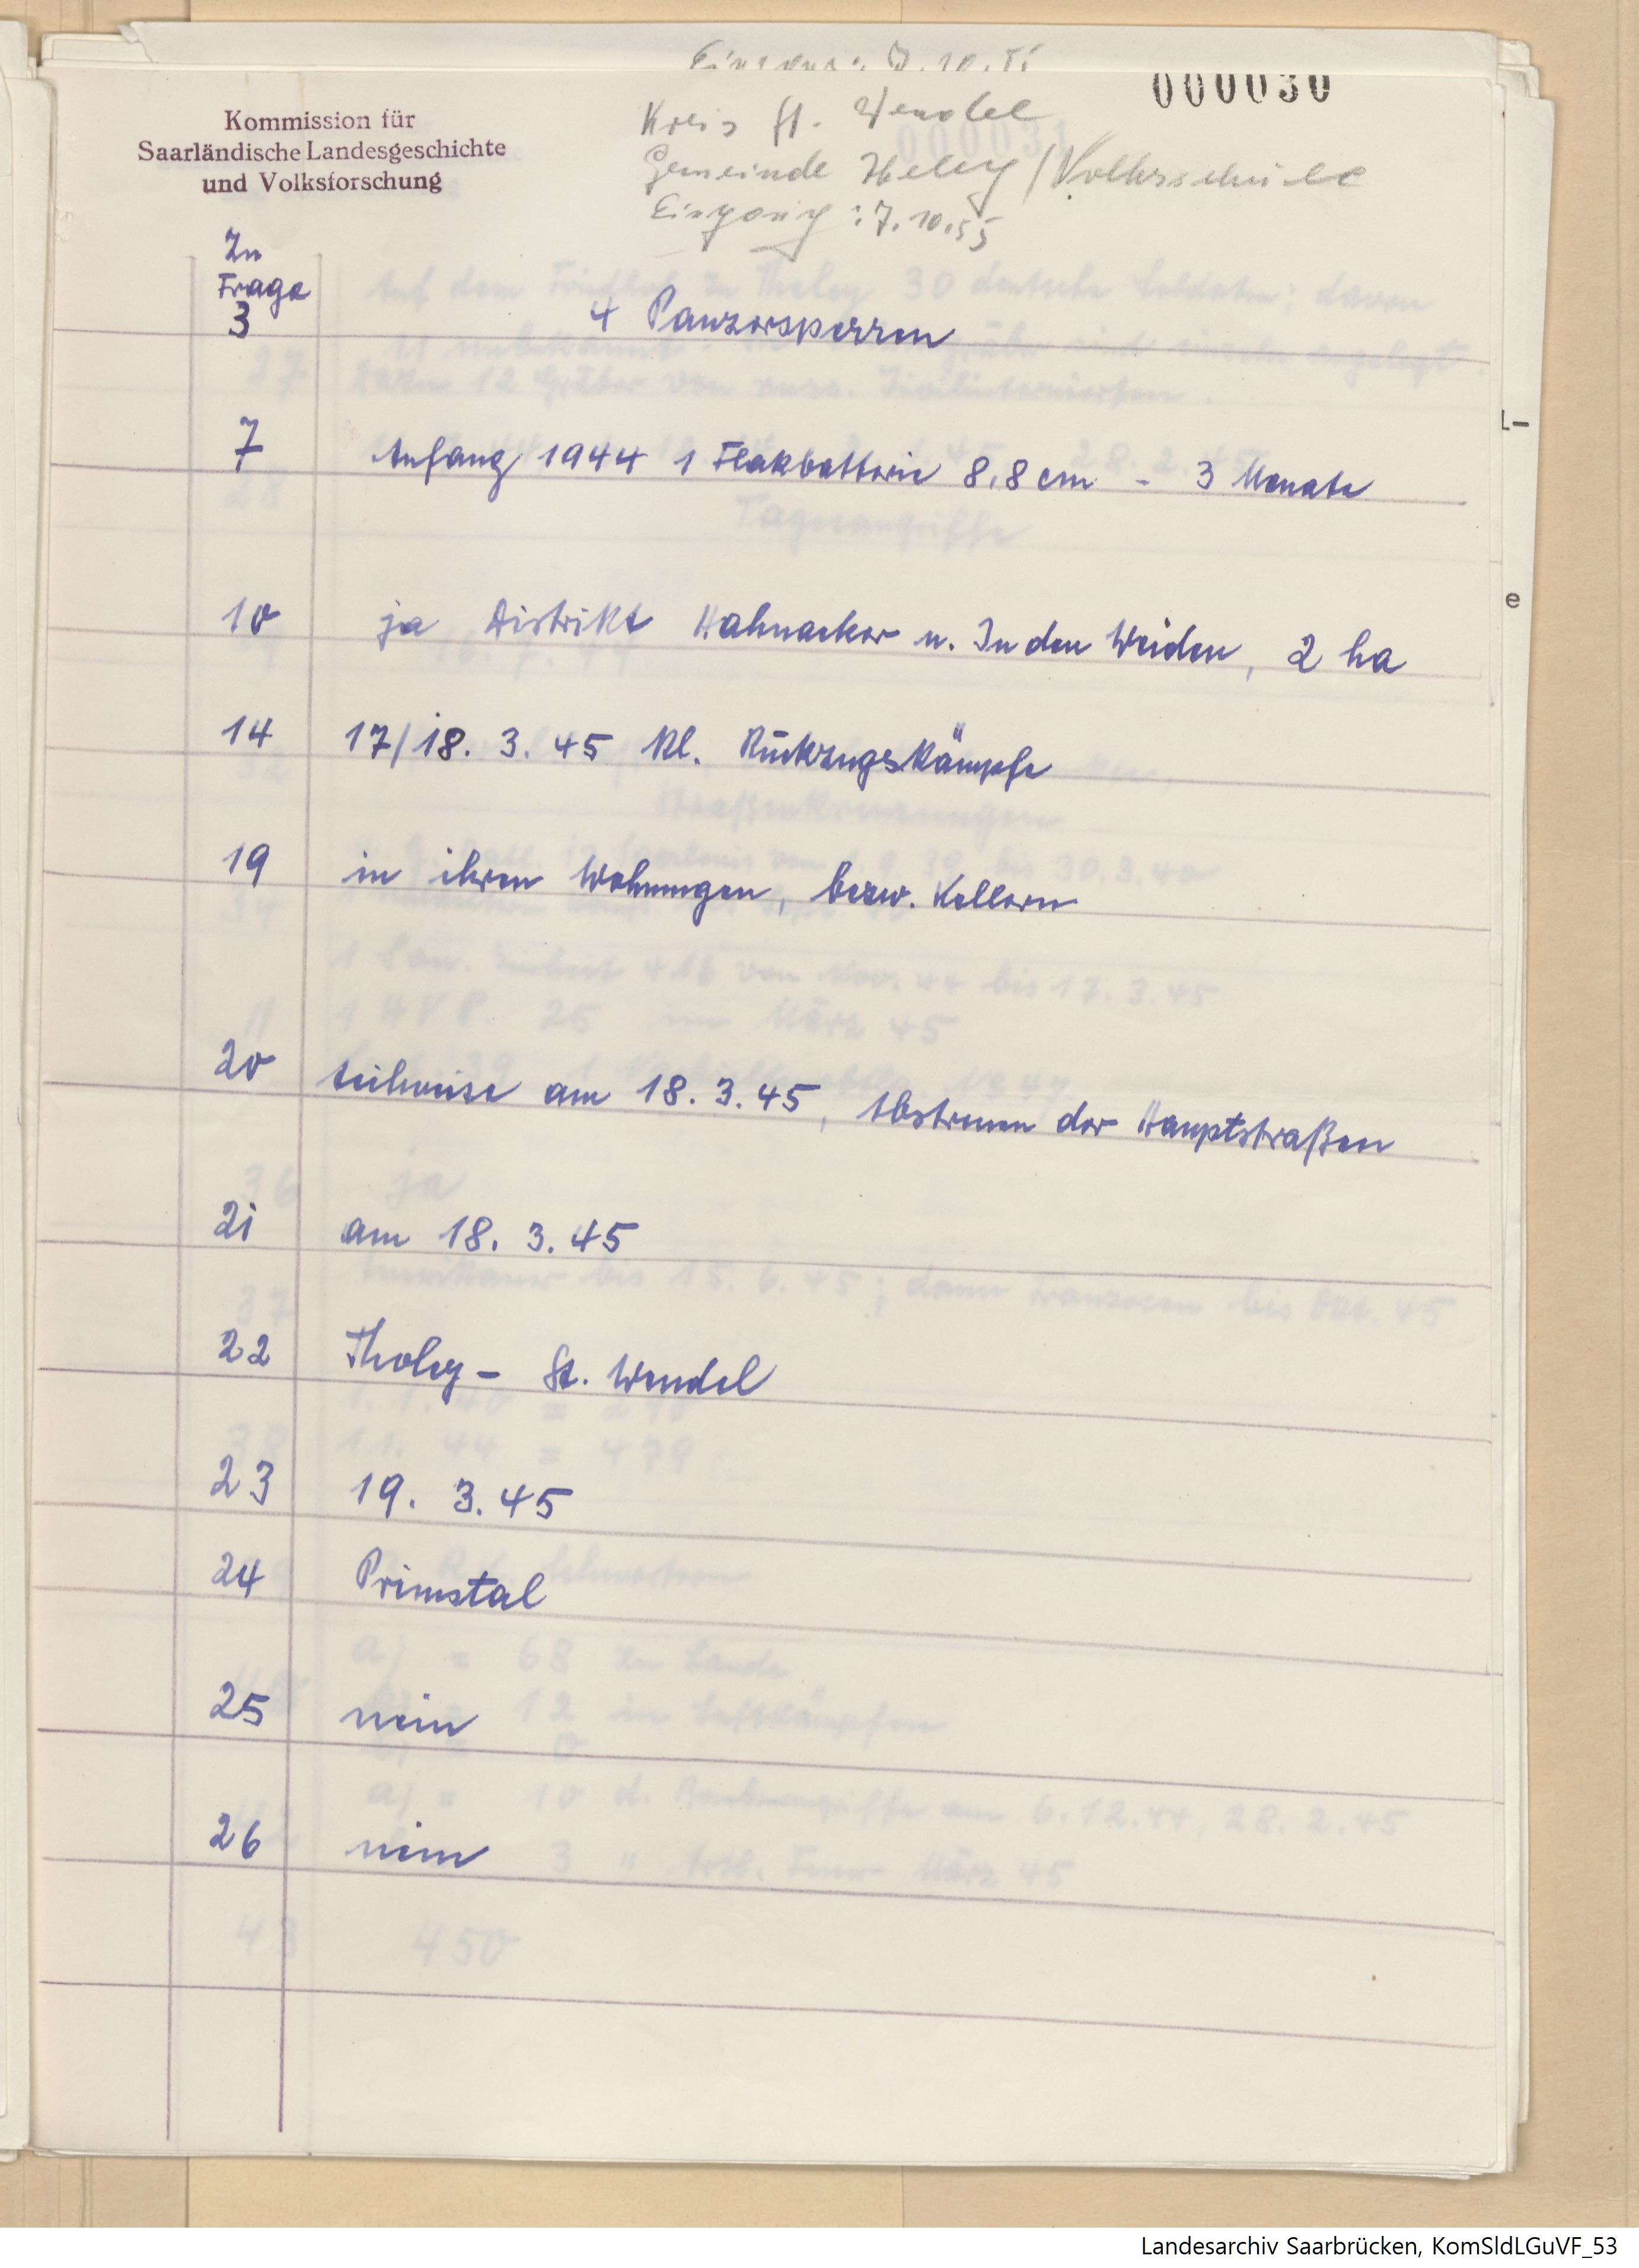 Eingang: 7.10.55
000030
Kommission für
Saarländische Landesgeschichte
und Volksforschung
Kreis St. Wendel
Gemeinde Theley / Volksschule
Eingang: 7.10.55
Zu
Frage
3 4 Panzersperren
7 Anfang 1944 1 Flakbatterie 8,8 cm - 3 Monate
10 ja Distrikt Hahnacker u. In den Weiden, 2 ha
14 17/18. 3. 45 Kl. Rückzugskämpfe
19 in ihren Wohnungen, bezw. Kellern
20 teilweise am 18. 3. 45, Abstreuen der Hauptstraßen
21 am 18. 3. 45
22 Tholey - St. Wendel
23 19. 3. 45
24 Primstal
25 nein
26 nein
L-
e
Landesarchiv Saarbrücken, KomSldLGuVF_53